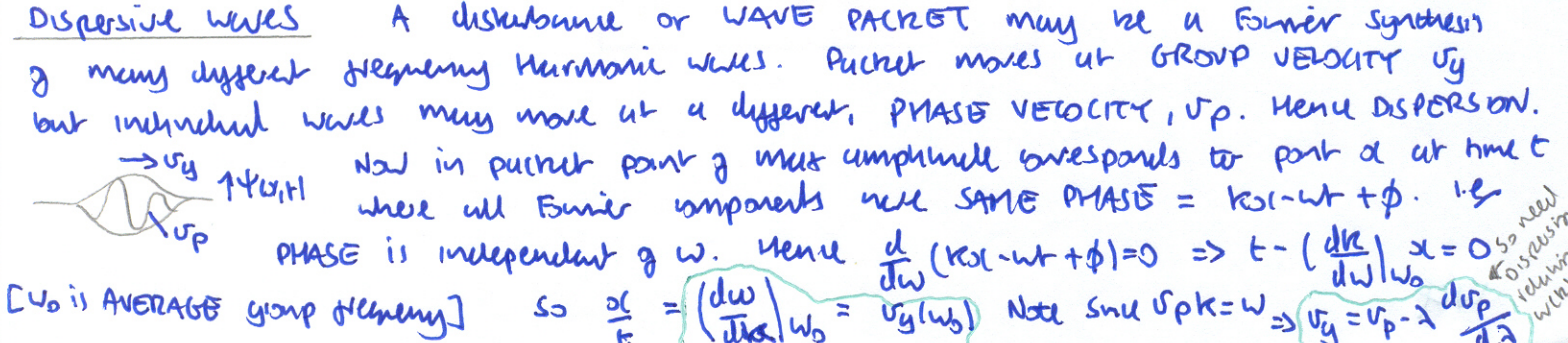 Dispersive waves A disturbance or WAVE PACKET may be a Fourier synthesis
of many different frequency Harmonic waves. Packet moves at GROUP VELOCITY vg
but individual waves may move at a different, PHASE VELOCITY, vp. Hence DISPERSION.
→vg ↑ψ(x,t) Now in packet point of max amplitude corresponds to point x at time t
vp where all Fourier components have SAME PHASE = kx-ωt+φ. i.e
PHASE is independent of ω. Hence d/dω (kx-ωt+φ)=0 => t-(dk/dω)|ω₀ x=0 so need Dispersion relation ω(k)
[ω₀ is AVERAGE group frequency] so x/t = (dω/dk)ω₀ = vg(ω₀) Note since vpk=ω => vg=vp-λ dvp/dλ